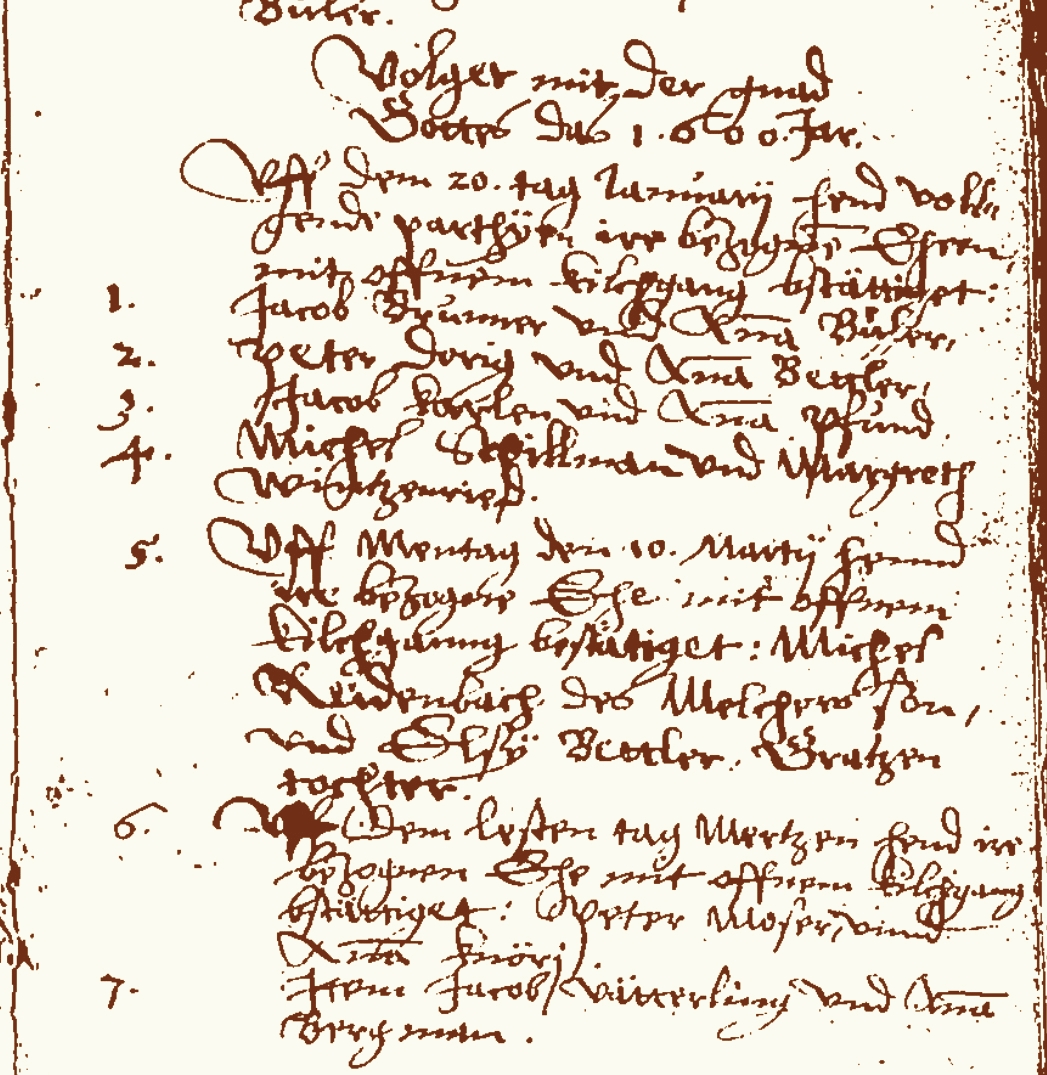 Büler.
Volget mit der gnad
Gottes das 1.600. Jar.
Vff dem 20. tag Januarij hend voll-
gende parthÿen ire bezogne Ehen
mit offnem kilchgang bstättiget:
1. Jacob Brunner vnd Anna Büler,
2. Peter Dorig vnd Anna Bettler,
3. Jacob vnd Anna Pfund.
4. Michel Spillman vnd Margreth
Wintzenried.
5. Vff Mentag den 10. Martij hennd
ire bezogne Ehe mit offnem
kilchganng bestätiget: Michel
Reüdenbach des Melchers son,
vnd Elsÿ Bettler. Gratzen
tochter.
6. Vff dem lesten tag Mertzen hend ire
bezognen Ehe mit offnem kilchgang
bstättiget: Peter Moser, vnnd
Anna Knöri
7. Item Jacob Vätterling vnd Anna
Bergman.